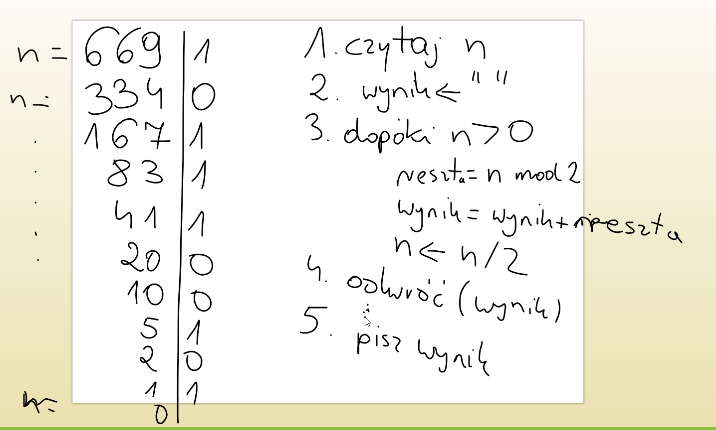 n = 669 | 1
n = 334 | 0
. 167 | 1
. 83 | 1
. 41 | 1
. 20 | 0
10 | 0
5 | 1
2 | 0
1 | 1
0
1. czytaj n
2. wynik ← " "
3. dopóki n > 0
reszta = n mod 2
wynik = wynik + reszta
n ← n/2
4. odwróć (wynik)
5. pisz wynik